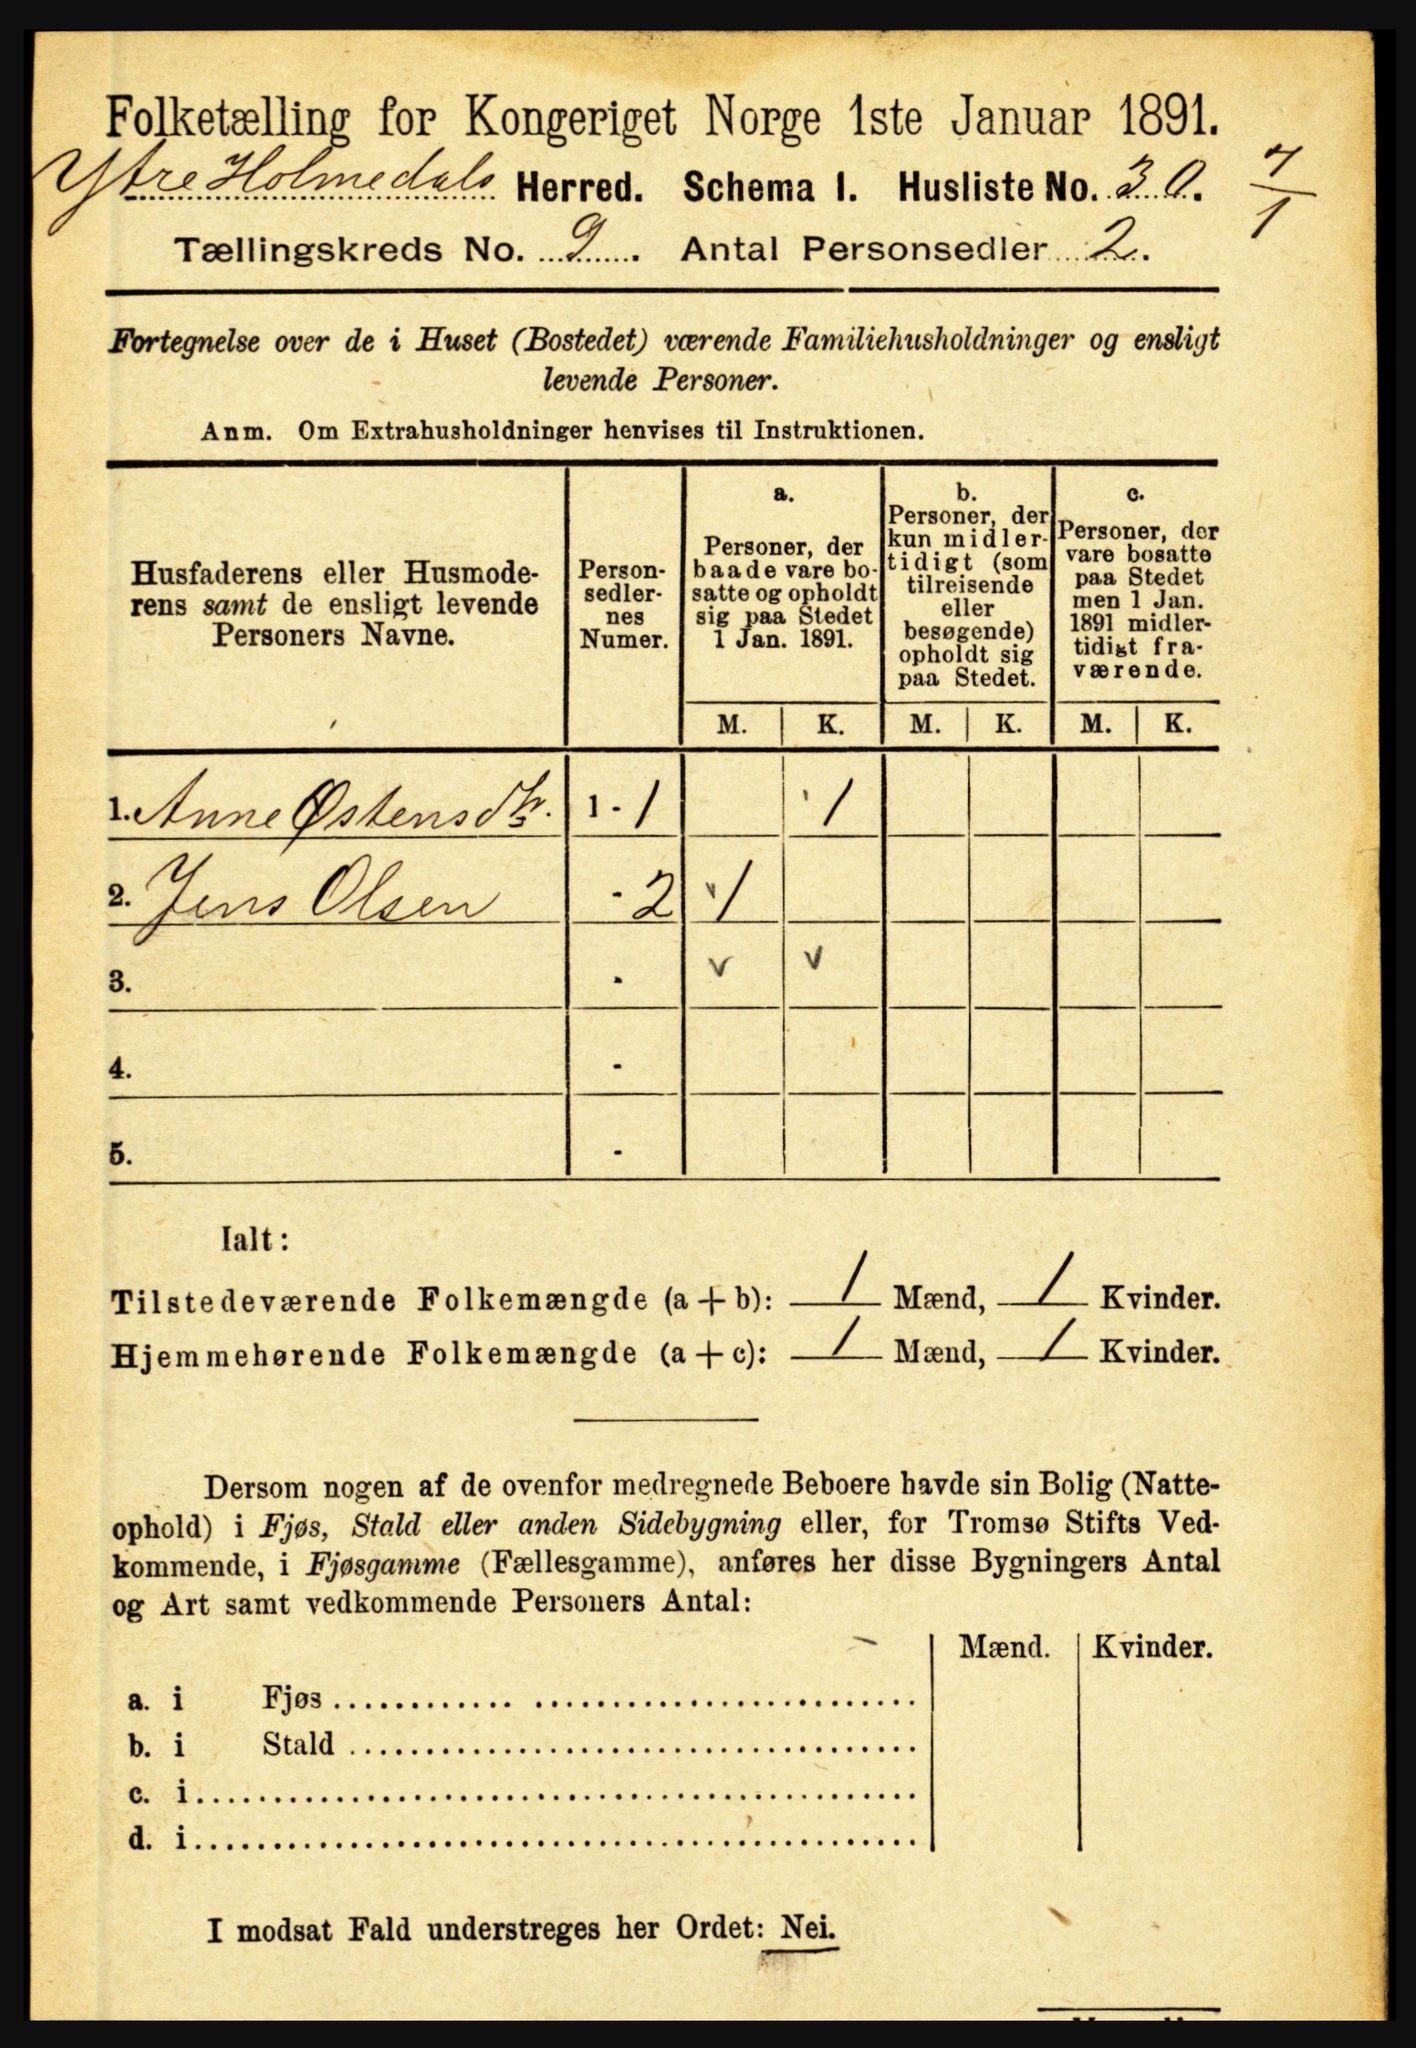 Folketælling for Kongeriget Norge 1ste Januar 1891.
Ytre Holmedals Herred. Schema I. Husliste No. 30. 7/1
Tællingskreds No. 9. Antal Personsedler 2.
Fortegnelse over de i Huset (Bostedet) værende Familiehusholdninger og ensligt
levende Personer.
Anm. Om Extrahusholdninger henvises til Instruktionen.
Husfaderens eller Husmode-
rens samt de ensligt levende
Personers Navne.
Person-
sedler-
nes
Numer.
a.
Personer, der
baade vare bo-
satte og opholdt
sig paa Stedet
1 Jan. 1891.
b.
Personer, der
kun midler-
tidigt (som
tilreisende
eller
besøgende)
opholdt sig
paa Stedet.
c.
Personer, der
vare bosatte
paa Stedet
men 1 Jan.
1891 midler-
tidigt fra-
værende.
M. K. M. K. M. K.
1. Anne Østensdtr. 1 - 1 1
2. Jens Olsen - 2 1
3. - v v
4. -
5. -
Ialt:
Tilstedeværende Folkemængde (a + b): 1 Mænd, 1 Kvinder.
Hjemmehørende Folkemængde (a + c): 1 Mænd, 1 Kvinder.
Dersom nogen af de ovenfor medregnede Beboere havde sin Bolig (Natte-
ophold) i Fjøs, Stald eller anden Sidebygning eller, for Tromsø Stifts Ved-
kommende, i Fjøsgamme (Fællesgamme), anføres her disse Bygningers Antal
og Art samt vedkommende Personers Antal:
Mænd. Kvinder.
a. i Fjøs
b. i Stald
c. i
d. i
I modsat Fald understreges her Ordet: Nei.